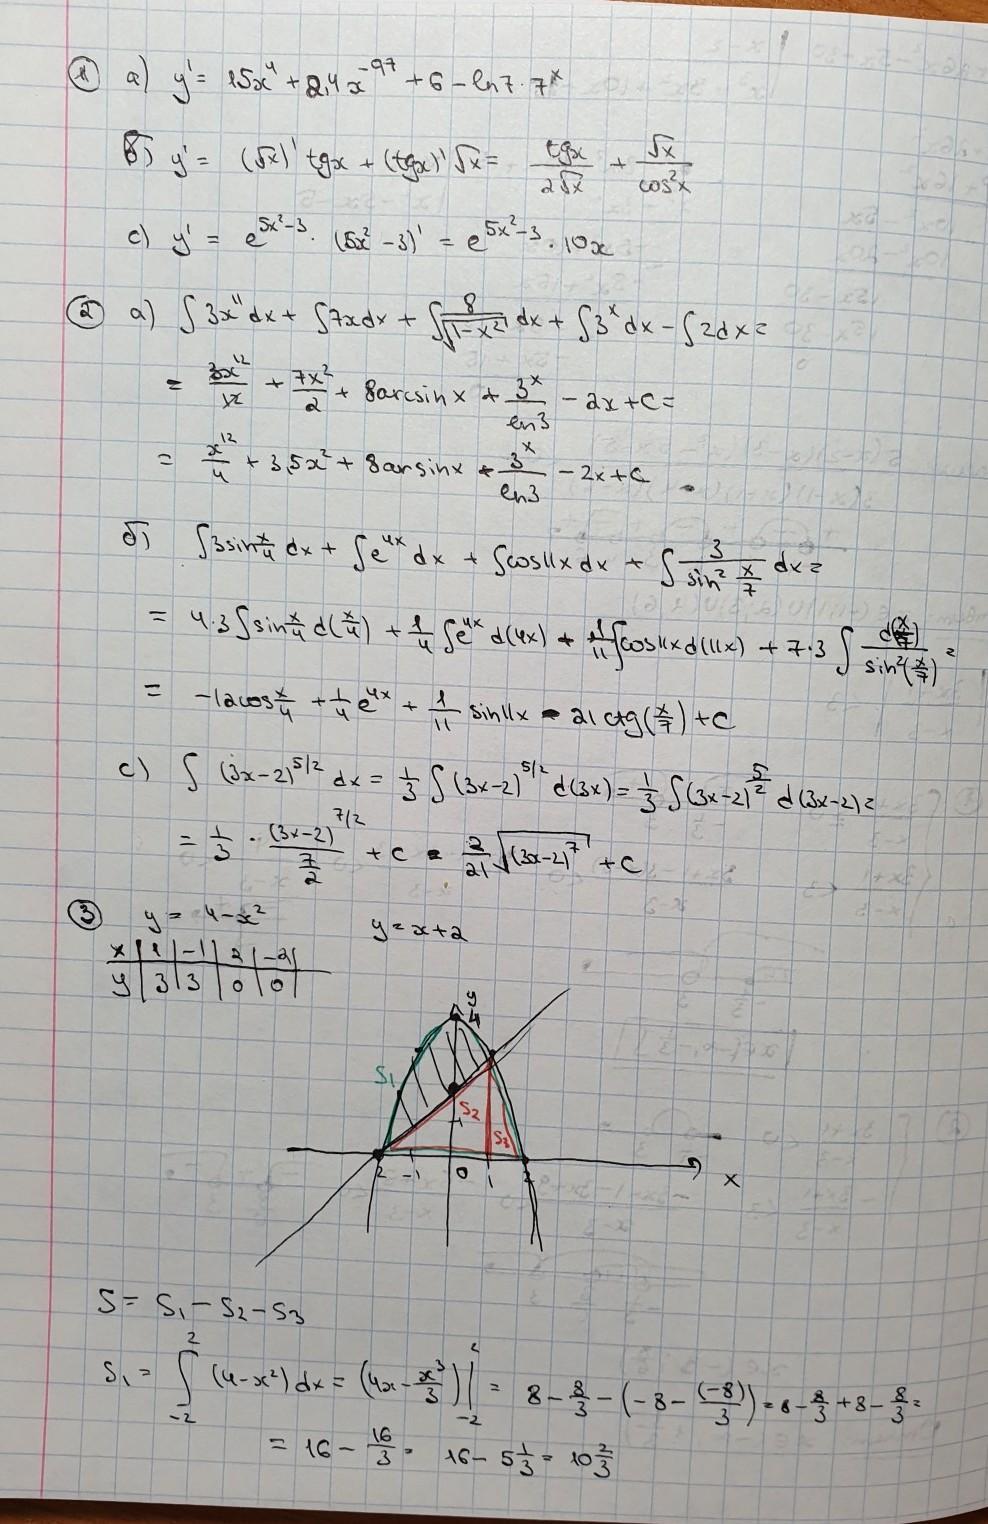 ① а) y' = 15x⁴ + 2,4x⁻⁹⁷ + 6 − ln7 · 7ˣ
б) y' = (√x)' tgx + (tgx)' √x = tgx/(2√x) + √x/cos²x
c) y' = e^(5x²−3) · (5x²−3)' = e^(5x²−3) · 10x
② а) ∫3x¹¹dx + ∫7xdx + ∫8/√(1−x²) dx + ∫3ˣdx − ∫2dx =
= 3x¹²/12 + 7x²/2 + 8arcsinx + 3ˣ/ln3 − 2x + C =
= x¹²/4 + 3,5x² + 8arsinx + 3ˣ/ln3 − 2x + C
б) ∫3sin x/4 dx + ∫e^(4x) dx + ∫cos11x dx + ∫3/(sin² x/7) dx =
= 4·3∫sin x/4 d(x/4) + 1/4 ∫e^(4x) d(4x) + 1/11 ∫cos11x d(11x) + 7·3 ∫ d(x/7)/sin²(x/7) =
= −12cos x/4 + 1/4 e^(4x) + 1/11 sin11x − 21 ctg(x/7) + C
c) ∫(3x−2)^(5/2) dx = 1/3 ∫(3x−2)^(5/2) d(3x) = 1/3 ∫(3x−2)^(5/2) d(3x−2) =
= 1/3 · (3x−2)^(7/2)/(7/2) + C = 2/21 √((3x−2)⁷) + C
③ y = 4−x² y = x+2
x | 1 | −1 | 2 | −2 |
y | 3 | 3 | 0 | 0 |
y
4
S₁
S₂
1
S₃
2 −1 0 1 2 x
S = S₁ − S₂ − S₃
S₁ = ∫₋₂² (4−x²) dx = (4x − x³/3)|₋₂² = 8 − 8/3 − (−8 − (−8)/3) = 8 − 8/3 + 8 − 8/3 =
= 16 − 16/3 = 16 − 5 1/3 = 10 2/3